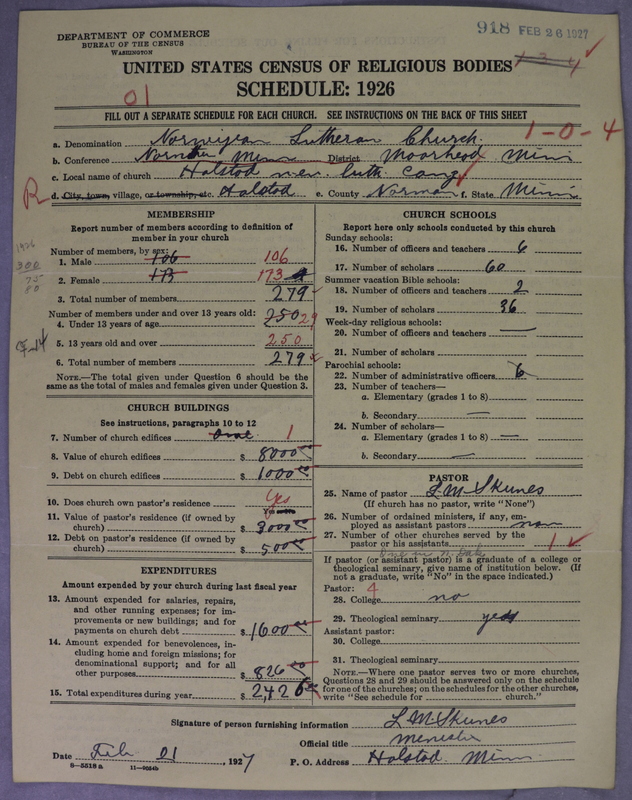 DEPARTMENT OF COMMERCE
BUREAU OF THE CENSUS
WASHINGTON
918 FEB 26 1927
UNITED STATES CENSUS OF RELIGIOUS BODIES
SCHEDULE: 1926
01
FILL OUT A SEPARATE SCHEDULE FOR EACH CHURCH. SEE INSTRUCTIONS ON THE BACK OF THIS SHEET
1-0-4
a. Denomination Norwegian Lutheran Church.
b. Conference Northern Minn District Moorhead Minn
c. Local name of church Halstad nor. luth. Cong
d. City, town, village, or township, etc. Halstad e. County Norman f. State Minn
R
MEMBERSHIP
Report number of members according to definition of
member in your church
Number of members, by sex:
1. Male 106 106
2. Female 173 173
3. Total number of members 279
Number of members under and over 13 years old:
4. Under 13 years of age 250 29
5. 13 years old and over 250
6. Total number of members 279
NOTE.—The total given under Question 6 should be
same as the total of males and females given under Question 3.
1926
300
CHURCH BUILDINGS
See instructions, paragraphs 10 to 12
7. Number of church edifices 1
8. Value of church edifices $ 8000 00
9. Debt on church edifices $ 1000 00
10. Does church own pastor's residence Yes
11. Value of pastor's residence (if owned by
church) $ 3000 00
12. Debt on pastor's residence (if owned by
church) $ 500 00
EXPENDITURES
Amount expended by your church during last fiscal year
13. Amount expended for salaries, repairs,
and other running expenses; for im-
provements or new buildings; and for
payments on church debt $ 1600 00
14. Amount expended for benevolences, in-
cluding home and foreign missions; for
denominational support; and for all
other purposes $ 826 00
15. Total expenditures during year $ 2426 00
CHURCH SCHOOLS
Report here only schools conducted by this church
Sunday schools:
16. Number of officers and teachers 6
17. Number of scholars 60
Summer vacation Bible schools:
18. Number of officers and teachers 2
19. Number of scholars 36
Week-day religious schools:
20. Number of officers and teachers —
21. Number of scholars
Parochial schools:
22. Number of administrative officers 6
23. Number of teachers—
a. Elementary (grades 1 to 8)
b. Secondary —
24. Number of scholars—
a. Elementary (grades 1 to 8) —
b. Secondary —
PASTOR
25. Name of pastor L M Skunes
(If church has no pastor, write "None")
26. Number of ordained ministers, if any, em-
ployed as assistant pastors non
27. Number of other churches served by the
pastor or his assistants 1
One in N. Dak
If pastor (or assistant pastor) is a graduate of a college or
theological seminary, give name of institution below. (If
not a graduate, write "No" in the space indicated.)
Pastor: 4
28. College no
29. Theological seminary yes
Assistant pastor:
30. College
31. Theological seminary
NOTE.—Where one pastor serves two or more churches,
Questions 28 and 29 should be answered only on the schedule
for one of the churches; on the schedules for the other churches,
write "See schedule for ______ church."
Signature of person furnishing information L M Skunes
Official title
Date Feb 01, 1927 P. O. Address Halstad Minn
8—5518 a 11—9054b